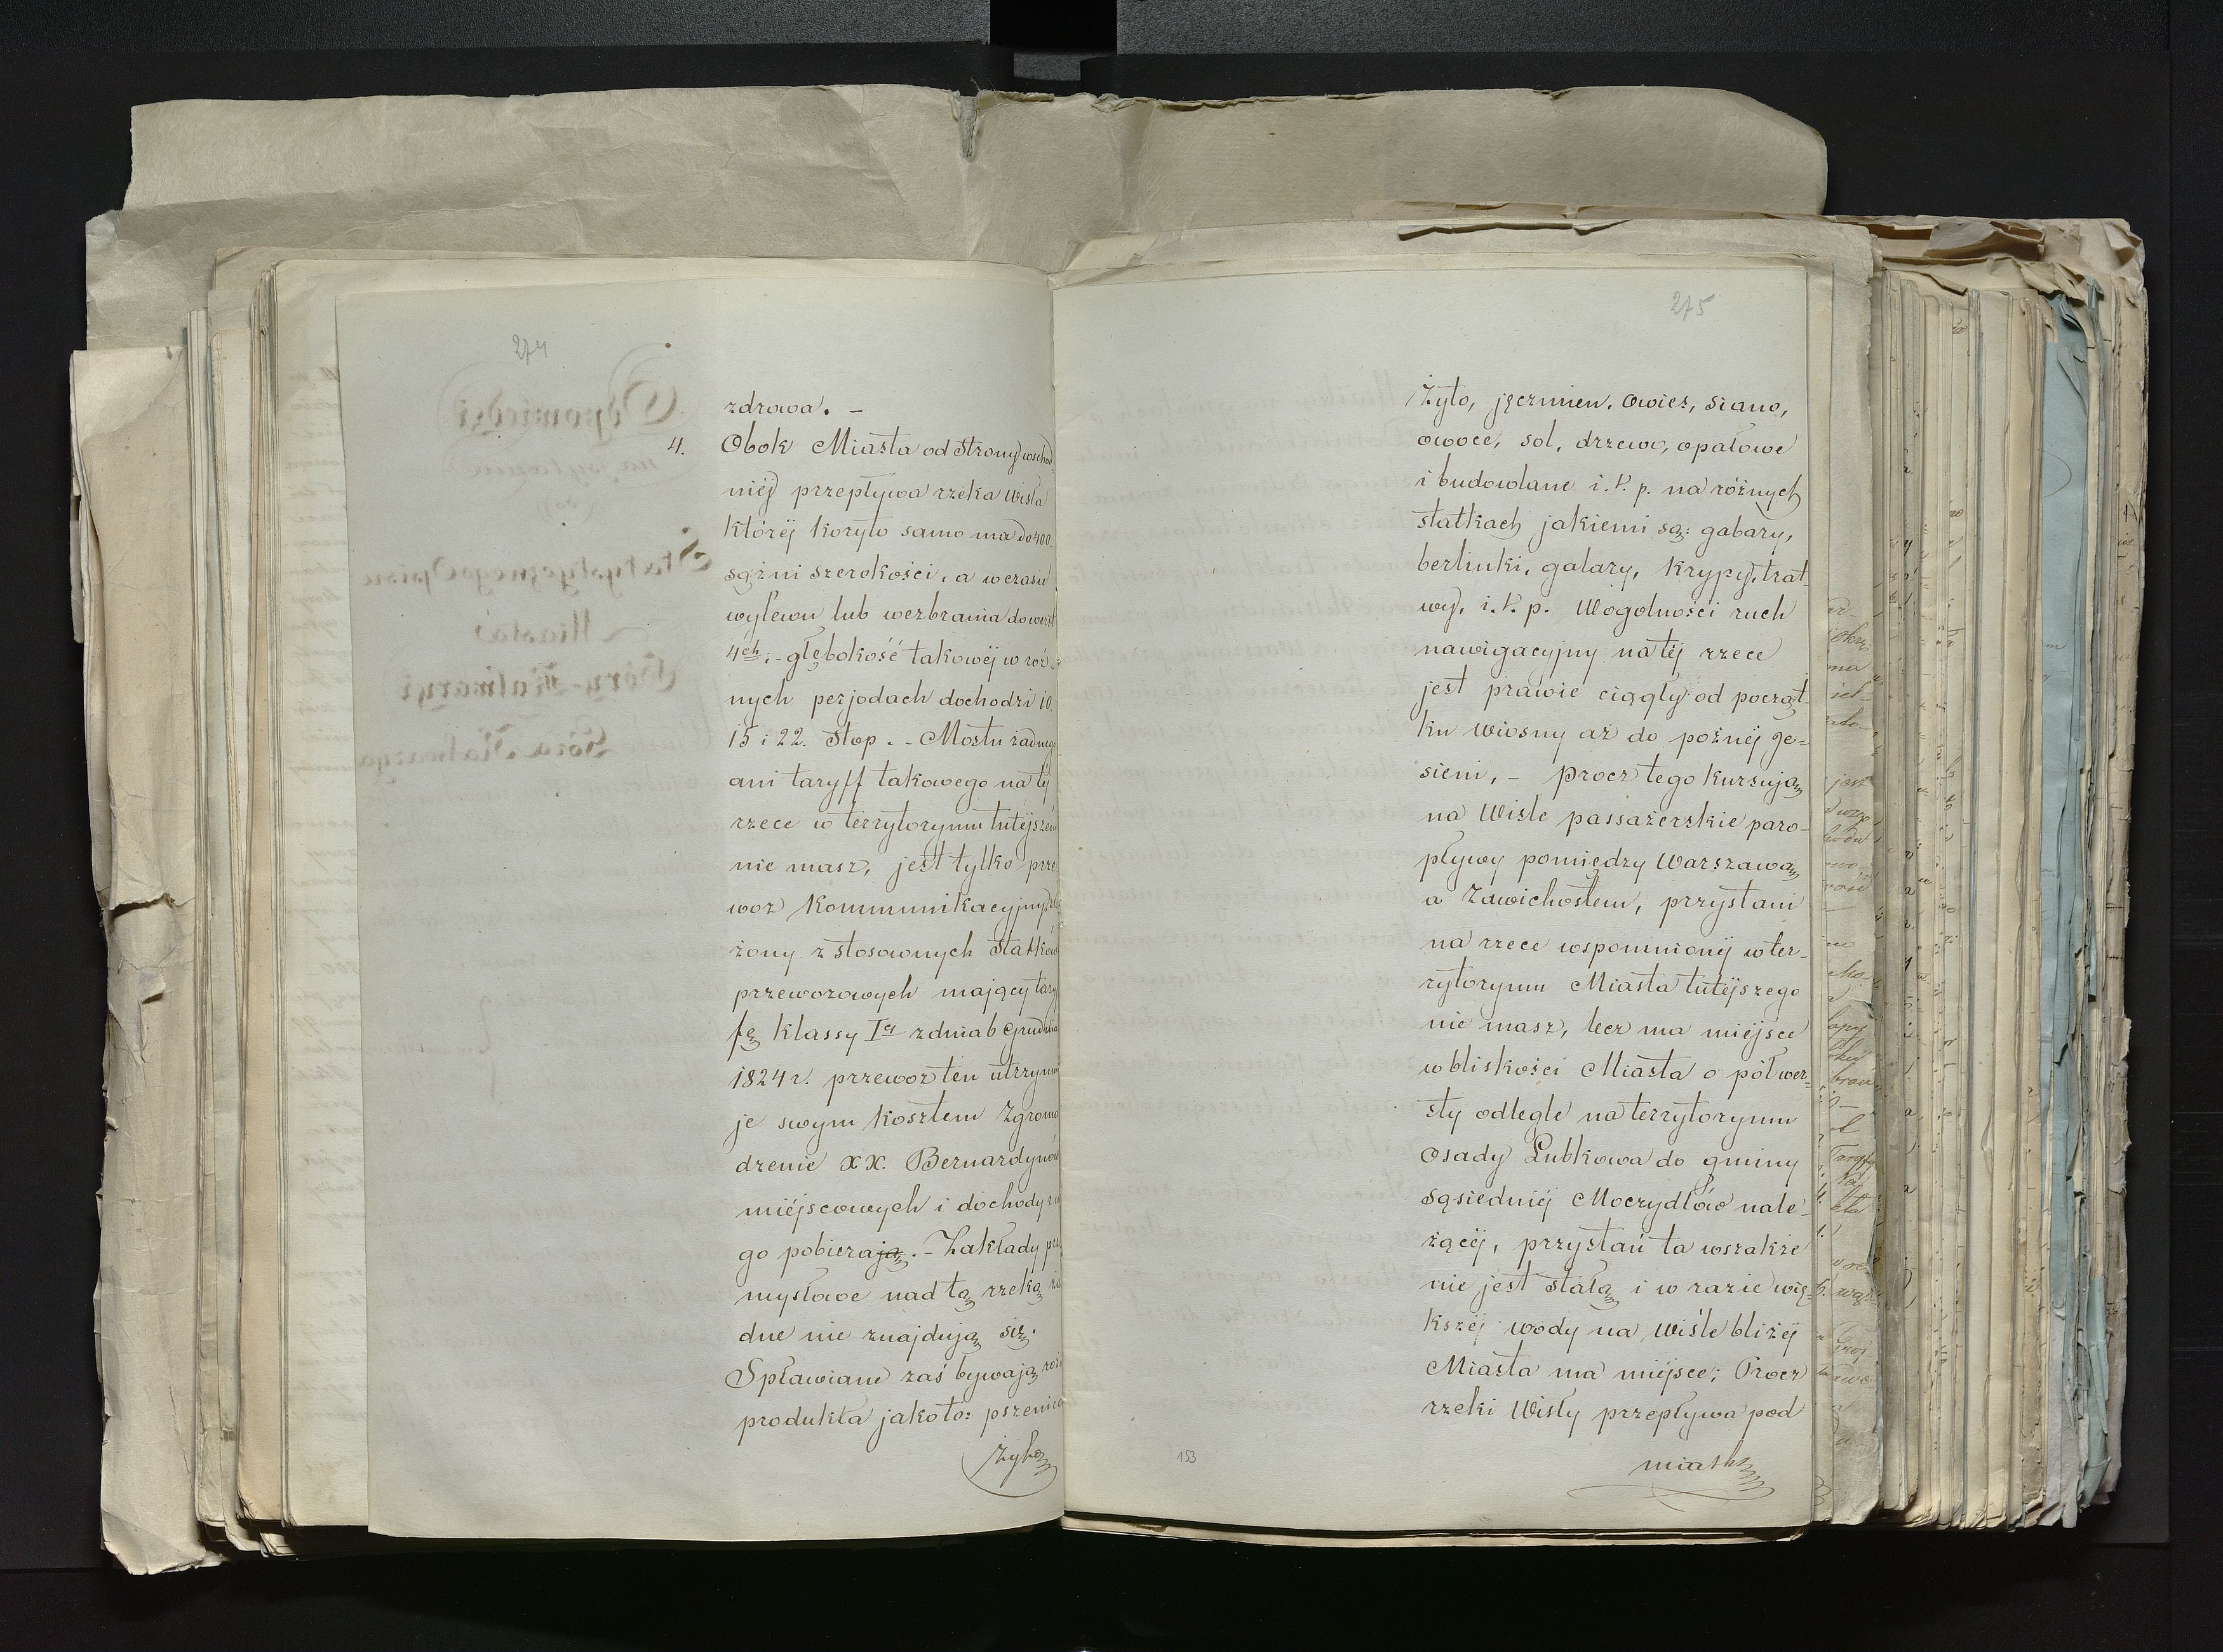 274
zdrowa. –
4. Obok Miasta od Strony wschod
niéj przepływa rzeka Wisła
któréj koryto samo ma do 400.
sążni szerokości, a w czasie
wylewu lub wezbrania do wiorst
4ch; - głębokość takowéj w róż
nych perjodach dochodzi 10.
15 i 22. Stop. - Mostu żadnego
ani taryff takowego na téj
rzece w terrytoryum tutéjszém
nie masz, jest tylko prze
woz Kommunikacyjny zło
żony z stosownych Statków
przewozowych mający tary
fę klassy Iéj z dnia 6 Grudnia
1824 r. przewoz ten utrzymu
je swym kosztem Zgroma
dzenie XX. Bernardynów
miéjscowych i dochody z nie
go pobiera ją. - Zakłady prze
mysłowe nad tą rzeką ża
dne nie znajdują się.
Spławiane zaś bywają różne
produkta jako to: pszenica
Żyto
275
Żyto, jęczmien, Owies, siano,
owoce, sol, drzewo, opałowe
i budowlane i.t.p. na różnych
statkach jakiemi są: gabary,
berlinki, galary, Krypy, trat-
wy, i.t.p. Wogolności ruch
nawigacyjny na téj rzece
jest prawie ciągły od począt-
ku wiosny aż do poźnéj je=
sieni, - procz tego kursują
na Wisle passażerskie paro-
pływy pomiędzy Warszawą
a Zawichostem, przystani
na rzece wspomnionéj w ter-
rytoryum Miasta tutéjszego
nie masz, lecz ma miejsce
w bliskości Miasta o pół wer=
sty odległe na terrytoryum
Osady Lubkowa do gminy
sąsiedniéj Moczydłów nale-
żącéj, przystań ta wszakże
nie jest stałą i w razie wię=
kszéj wody na Wiśle bliżéj
Miasta ma miéjsce; Procz
rzeki Wisły przepływa pod
miastem
153